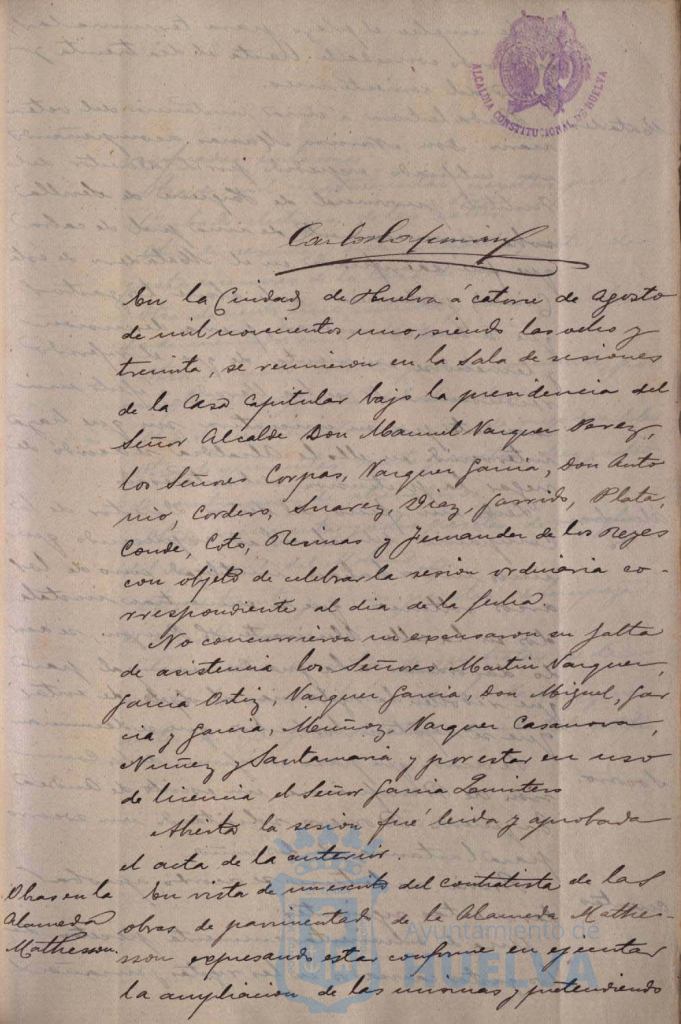 ALCALDIA CONSTITUCIONAL DE HUELVA
Carlos
En la Ciudad de Huelva á catorce de Agosto
de mil novecientos uno, siendo las ocho y
treinta, se reunieron en la Sala de sesiones
de la Casa Capitular bajo la presidencia del
Señor Alcalde Don Manuel Vazquez Perez,
los Señores Corpas, Vazquez Garcia, Don Anto
nio, Cordero, Suarez, Diaz, Garrido, Plata,
Conde, Coto, Resinas y Fernandez de los Reyes
con objeto de celebrar la sesión ordinaria co-
rrespondiente al dia de la fecha.
No concurrieron ni excusaron su falta
de asistencia los Señores Martin Vazquez,
Garcia Ortiz, Vazquez Garcia, Don Miguel, Gar
cia y Garcia, Muñoz, Vazquez Casanova,
Nuñez y Santamaria y por estar en uso
de licencia el Señor Garcia Quintero
Abierta la sesión fué leida y aprobada
el acta de la anterior.
Obras en la
Alameda
Mathesson.
En vista de un escrito del contratista de las
obras de pavimentado de la Alameda Mathe-
sson expresando estar conforme en ejecutar
la ampliación de las mismas y pretendiendo
Ayuntamiento de
HUELVA